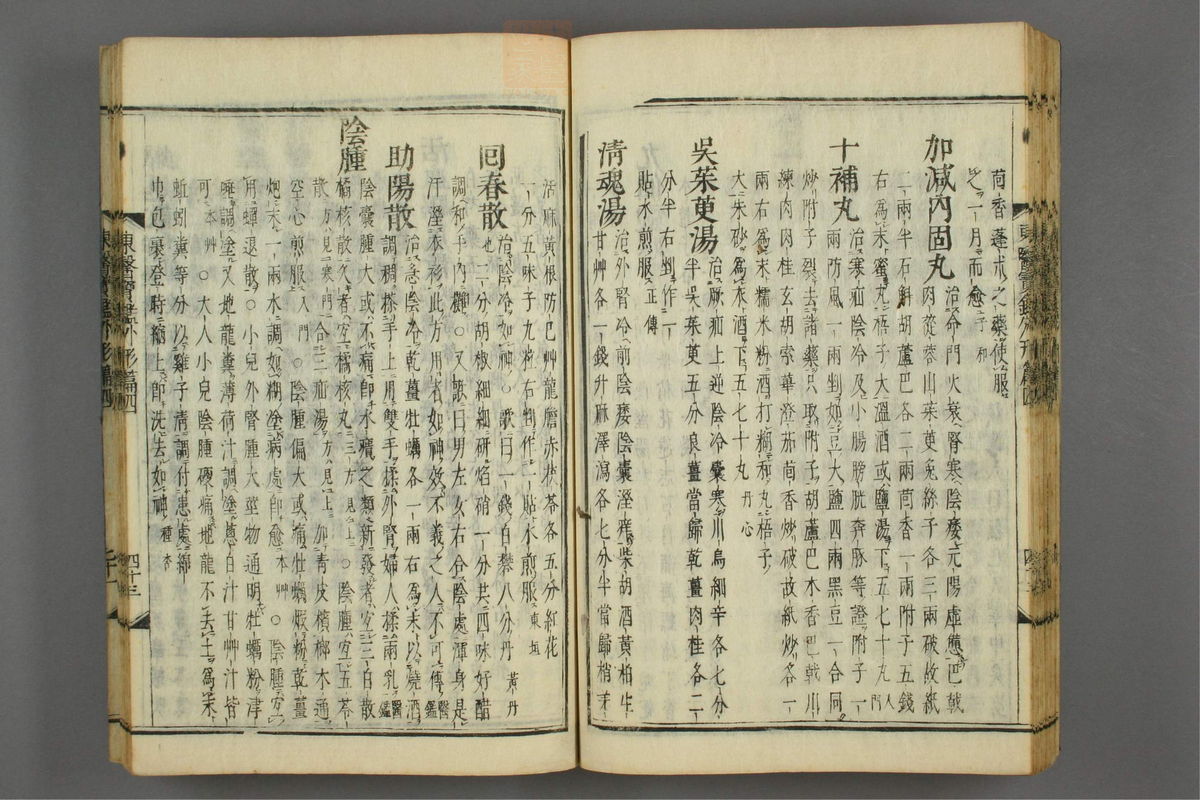 茴香蓬朮之藥使服
之一月而愈子和
加減內固丸 治命門火衰腎寒陰痿元陽虛憊巴戟
肉蓯蓉山茱萸兔絲子各三兩破故紙
二兩半石斛胡蘆巴各二兩茴香一兩附子五錢
右爲末蜜丸梧子大溫酒或鹽湯下五七十丸入門
十補丸 治寒疝陰冷及小腸膀胱奔豚等證附子一
兩剉如豆大鹽四兩黑豆一合同
炒附子裂去諸藥只取附子胡蘆巴木香巴戟川
練肉肉桂玄胡索蓽澄茄茴香炒破故紙炒各一
兩右爲末糯米粉酒打糊和丸梧子
大朱砂爲衣酒下五七十丸丹心
吳茱萸湯 治厥疝上逆陰冷囊寒川烏細辛各七分
半吳茱萸五分良薑當歸乾薑肉桂各二
分半右剉作一
貼水煎服正傳
淸魂湯 治外腎冷前陰痿陰囊溼痒柴胡酒黃柏生
甘艸各一錢升麻澤瀉各七分半當歸梢羌
活麻黃根防己艸龍膽赤茯苓各五分紅花
一分五味子九粒右剉作一貼水煎服東垣
回春散 治陰冷如神○歌曰一錢白礬八分丹黃丹
也二分胡椒細細研焰硝一分共四味好醋
調和手內攤○又歌曰男左女右合陰處渾身是
汗溼衣衫此方用者如神效不義之人不可傳醫鑑
助陽散 治急陰冷乾薑牡蠣各一兩右爲末以燒酒
調稠搽手上用雙手揉外腎婦人揉兩乳醫鑑
陰腫 陰囊腫大或不痛卽水㿗之類新發者宜三白散
橘核散久者宜橘核丸三方見上○陰腫宜五苓
散方見寒門合三疝湯方見上加靑皮檳榔木通
空心煎服入門○陰腫偏大或痛牡蠣煆粉乾薑
炮末一兩水調如糊塗病處卽愈本艸○陰腫宜
用蟬退散○小兒外腎腫大莖物通明牡蠣粉津
唾調塗又地龍糞薄荷汁調塗蔥白汁甘艸汁皆
可本艸○大人小兒陰腫硬痛地龍不去土爲末
蚯蚓糞等分以雞子淸調付患處綿
巾包裹登時縮上卽洗去如神種杏
東醫寶鑑外形篇四
四十三